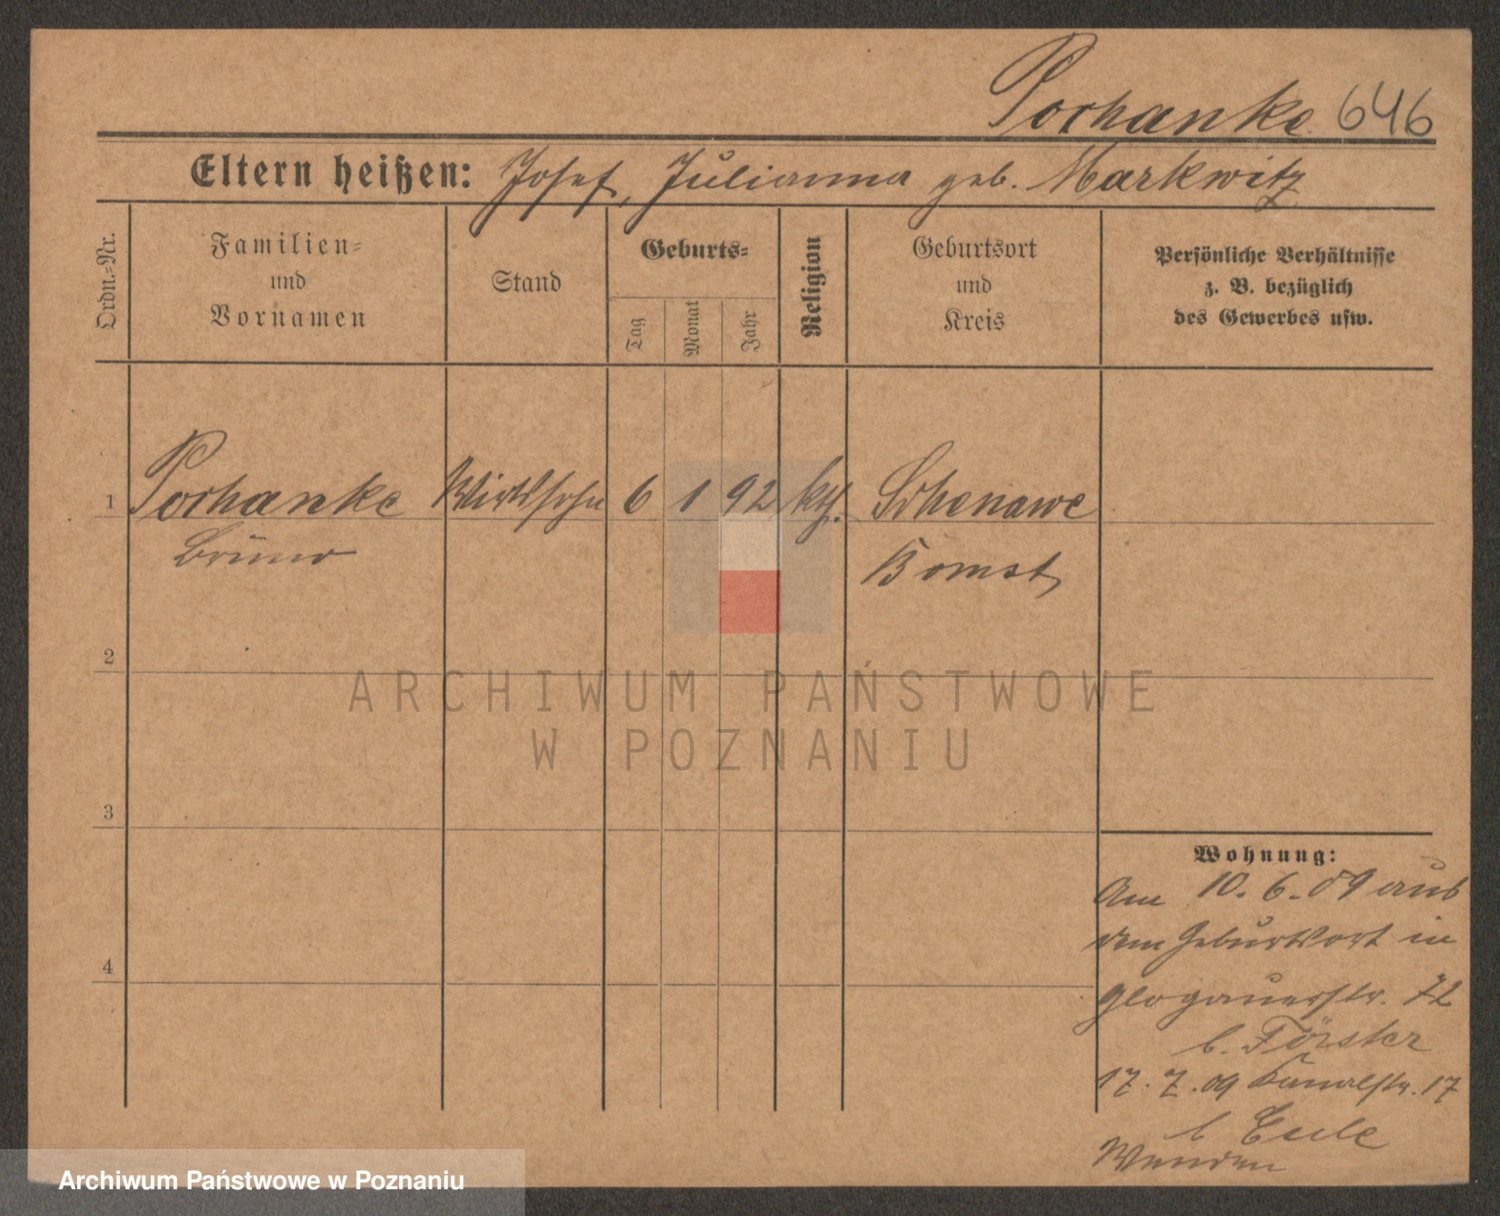 Porhanke 646
Eltern heißen: Josef, Julianna geb. Markwitz
Ordn.-Nr.
Familien-
und
Vornamen
Stand
Geburts-
Tag
Monat
Jahr
Religion
Geburtsort
und
Kreis
Persönliche Verhältnisse
z. B. bezüglich
des Gewerbes usw.
1 Porhanke Wirtssohn 6 1 92 kth.
Bruno Bomst
2
3
4
Wohnung:
Am 10.6.09 aus
dem Geburtsort in
Glogauerstr. 72
b. Förster
17.7.09 Kanalstr. 17
b Eule
ARCHIWUM PAŃSTWOWE
W POZNANIU
Archiwum Państwowe w Poznaniu